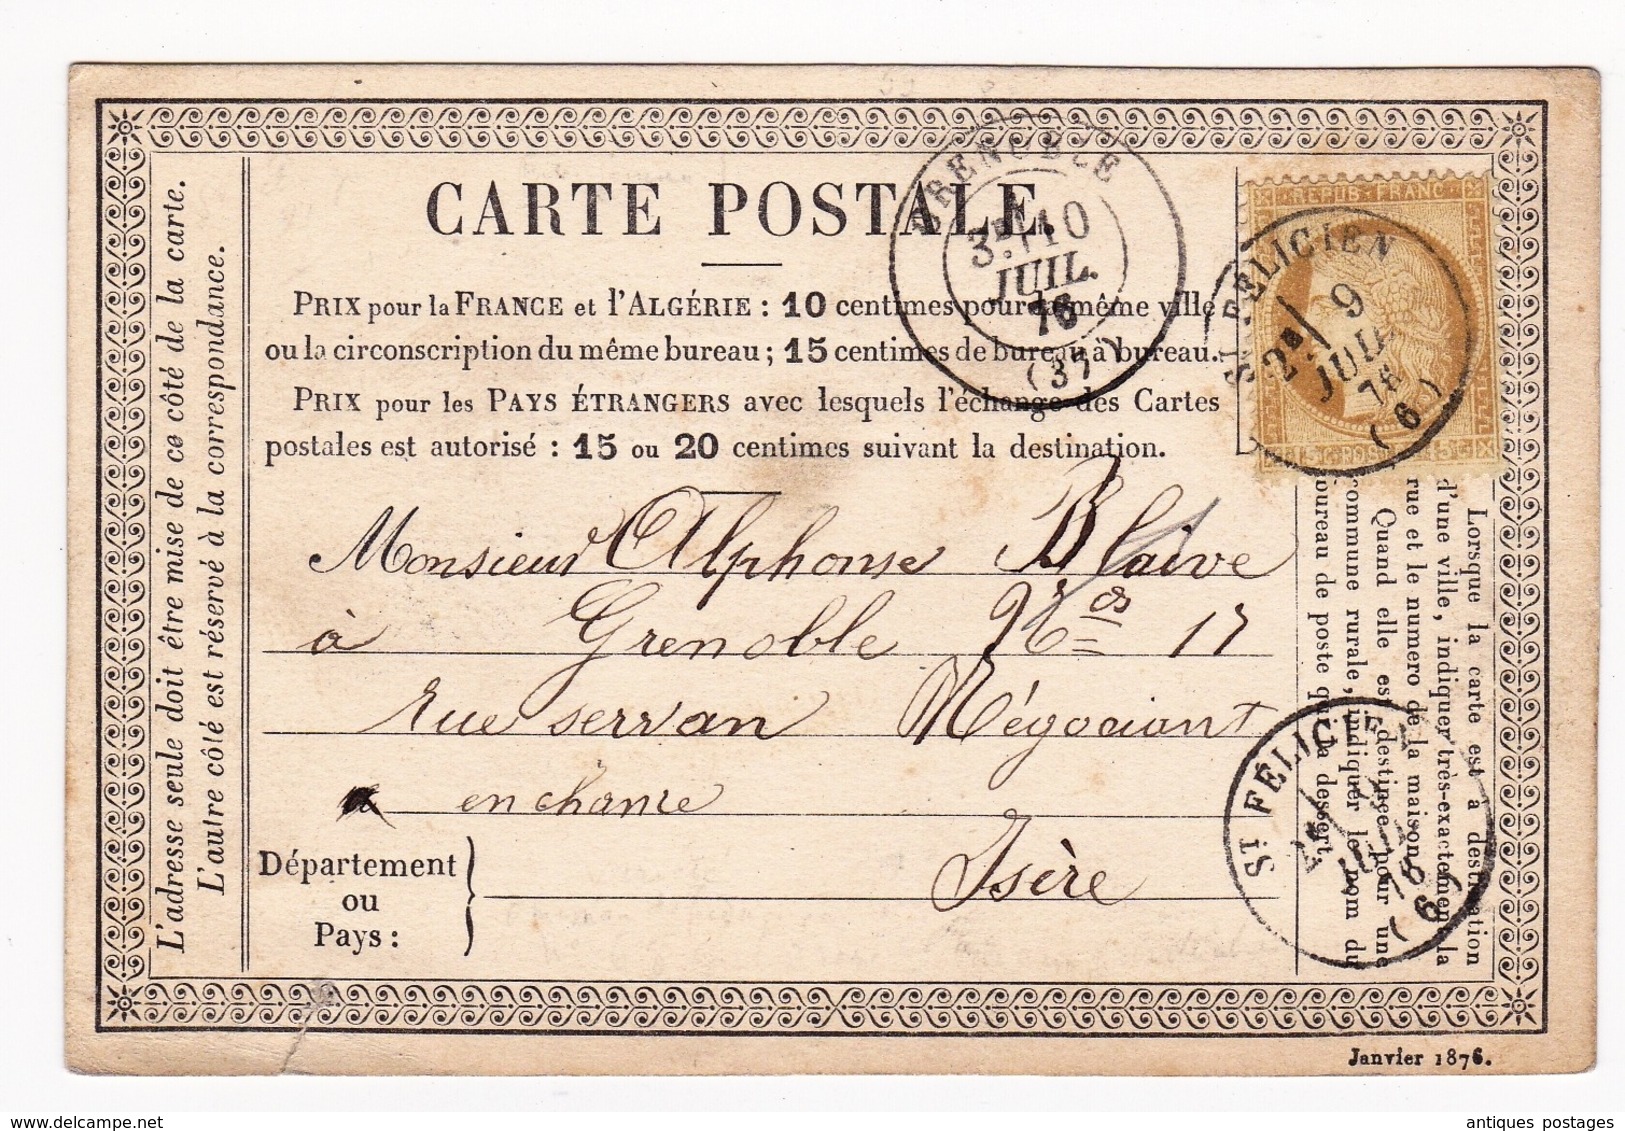 CARTE POSTALE.
PRIX pour la FRANCE et l'ALGÉRIE : 10 centimes pour la même ville
ou la circonscription du même bureau ; 15 centimes de bureau à bureau.
PRIX pour les PAYS ÉTRANGERS avec lesquels l'échange des Cartes
postales est autorisé : 15 ou 20 centimes suivant la destination.
Monsieur Alphonse Blaive
à Grenoble Nos 17
rue servan Négociant
en chanvre
Département
ou
Pays :
Isère
L'adresse seule doit être mise de ce côté de la carte.
L'autre côté est réservé à la correspondance.
Lorsque la carte est à destination
d'une ville, indiquer très-exactement la
rue et le numero de la maison.
Quand elle est destinée pour une
commune rurale, indiquer le nom du
bureau de poste qui la dessert.
GRENOBLE
3E 10
JUIL.
76
(37)
REPUB FRANC
15 C. POSTES 15 C
ST FELICIEN
2E 9
JUIL.
76
(6)
ST FÉLICIEN
2E 9
JUIL.
76
(6)
Janvier 1876.
antiques postages